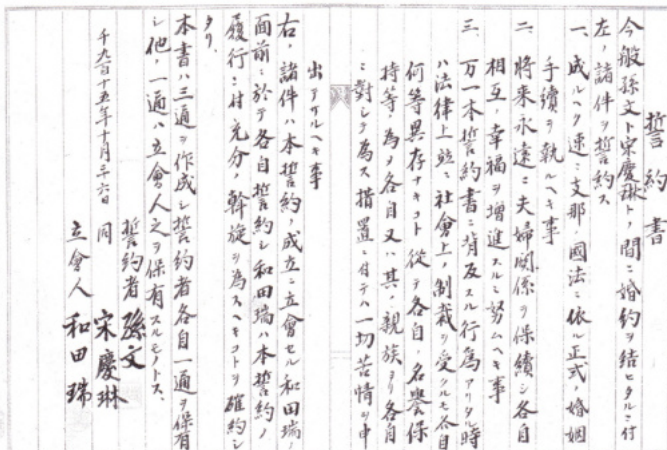 誓約書
今般孫文ト宋慶琳トノ間ニ婚約ヲ結ヒタルニ付
左ノ諸件ヲ誓約ス
一、成ルヘク速ニ支那ノ國法ニ依ル正式ノ婚姻
手續ヲ執ルヘキ事
二、將来永遠ニ夫婦関係ヲ保續シ各自
相互ノ幸福ヲ増進スルニ努ムヘキ事
三、万一本誓約書ニ背反スル行為アリタル時
ハ法律上並ニ社會上ノ制裁ヲ受クルモ各自
何等異存ナキコト從テ各自ノ名譽保
持等ノ為メ各自又ハ其ノ親族ヨリ各自
ニ對シテ為ス措置ニ付テハ一切苦情ヲ申
出テサルヘキ事
右ノ諸件ハ本誓約ノ成立ニ立會セル和田瑞ノ
面前ニ於テ各自誓約シ和田瑞ハ本誓約ノ
履行ニ付充分ノ斡旋ヲ為スヘキコトヲ確約シ
タリ、
本書ハ三通ヲ作成シ誓約者各自一通ヲ保有
シ他ノ一通ハ立會人之ヲ保有スルモノトス、
千九百十五年十月二六日
誓約者 孫文
同 宋慶琳
立會人 和田瑞